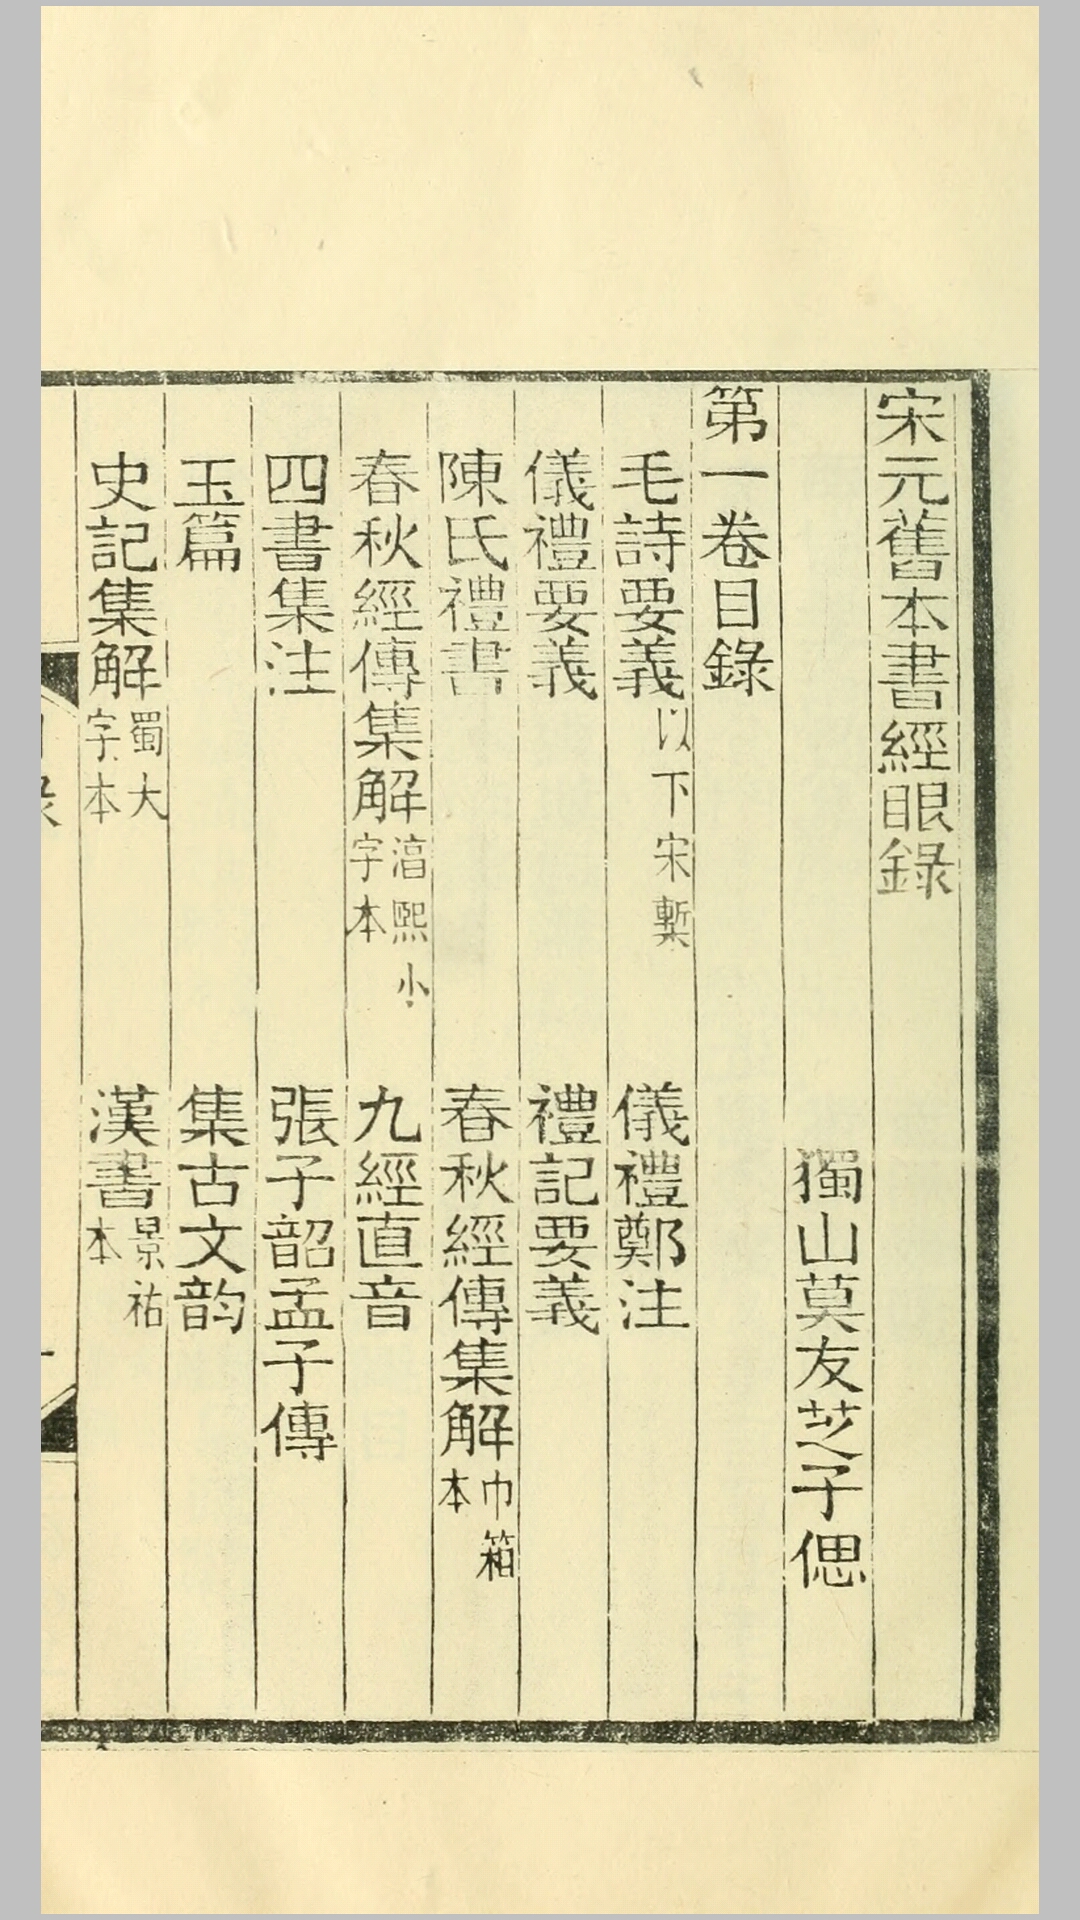 宋元舊本書經眼錄
獨山莫友芝子偲
第一卷目錄
毛詩要義以下宋槧 儀禮鄭注
儀禮要義 禮記要義
陳氏禮書 春秋經傳集解巾箱本
春秋經傳集解湻熙小字本 九經直音
四書集注 張子韶孟子傳
玉篇 集古文韵
史記集解蜀大字本 漢書景祐本